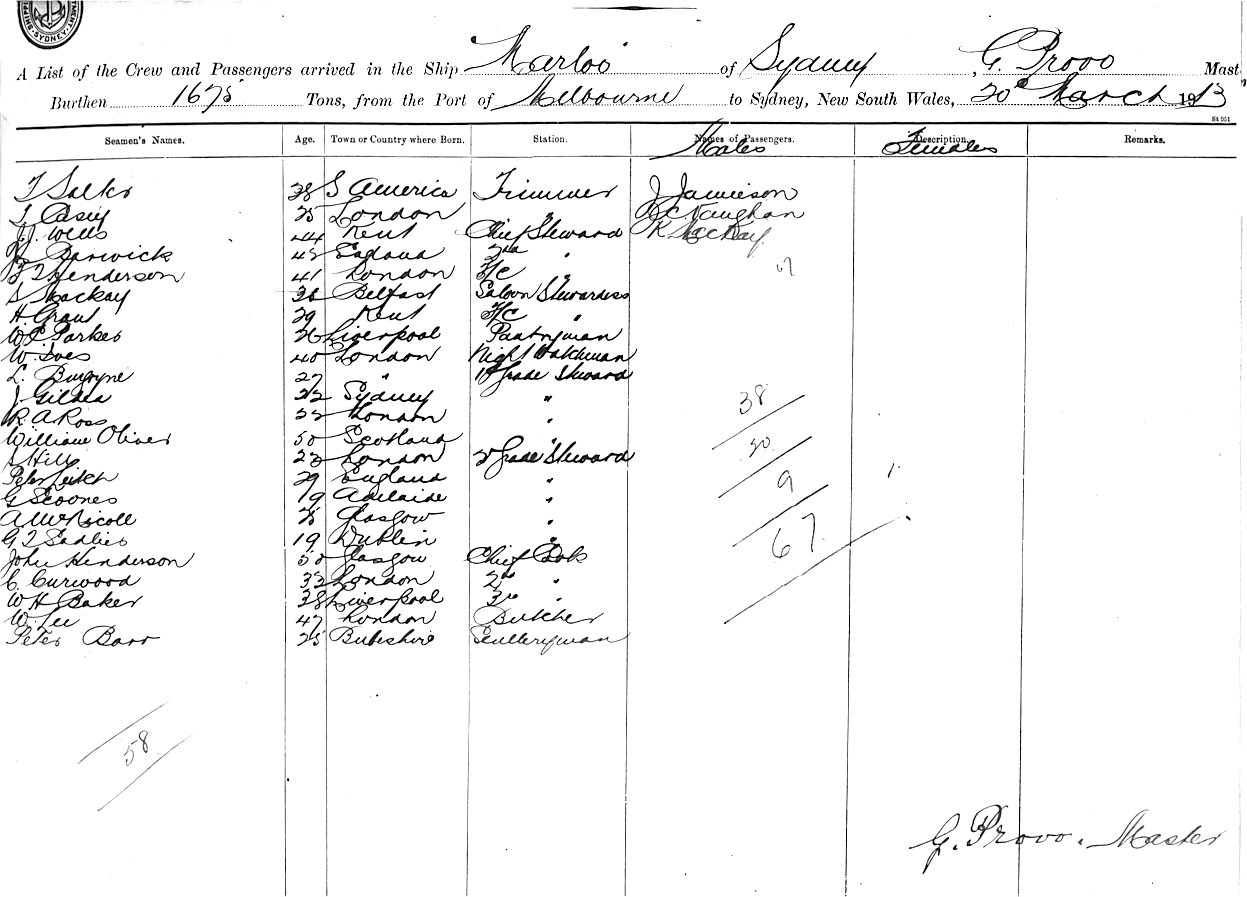 SYDNEY
A List of the Crew and Passengers arrived in the Ship "Marloo" of Sydney, G. Provo Mast
Burthen 1675 Tons, from the Port of Melbourne to Sydney, New South Wales, 20th March 1913
St 951
Seamen's Names. Age. Town or Country where Born. Station. Names of Passengers. Males Description. Females Remarks.
28 S America Trimmer J Jamieson
T. Casey 25 London " B C Vaughan
J. Wells 44 Kent Chief Steward R McKay
Barwick 42 2nd "
Henderson 41 London F/C " 67
S Mackay 36 Belfast Saloon Stewardess
H Grant 29 Kent F/C "
W E Parkes 26 Liverpool Pantryman
W. Ives 40 London Night Watchman
L. Burgoyne 27 " 1st Grade Steward
J. Gildea 22 Sydney "
R. A. Ross 22 London "
William Oliver 50 Scotland "
S Hill 23 London 2 Grade Steward
Peter Leitch 29 England "
G Scoones 19 Adelaide "
A McNicoll Glasgow "
G T Sadlier 19 Dublin "
John Henderson 52 Glasgow Chief Cook
C. Curwood 32 London 2nd "
W H Baker 38 Liverpool 3rd "
W. Lee 47 London Butcher
Peter Barr 25 Buteshire Sculleryman
38
20
9 1
67
58
G. Provo. Master